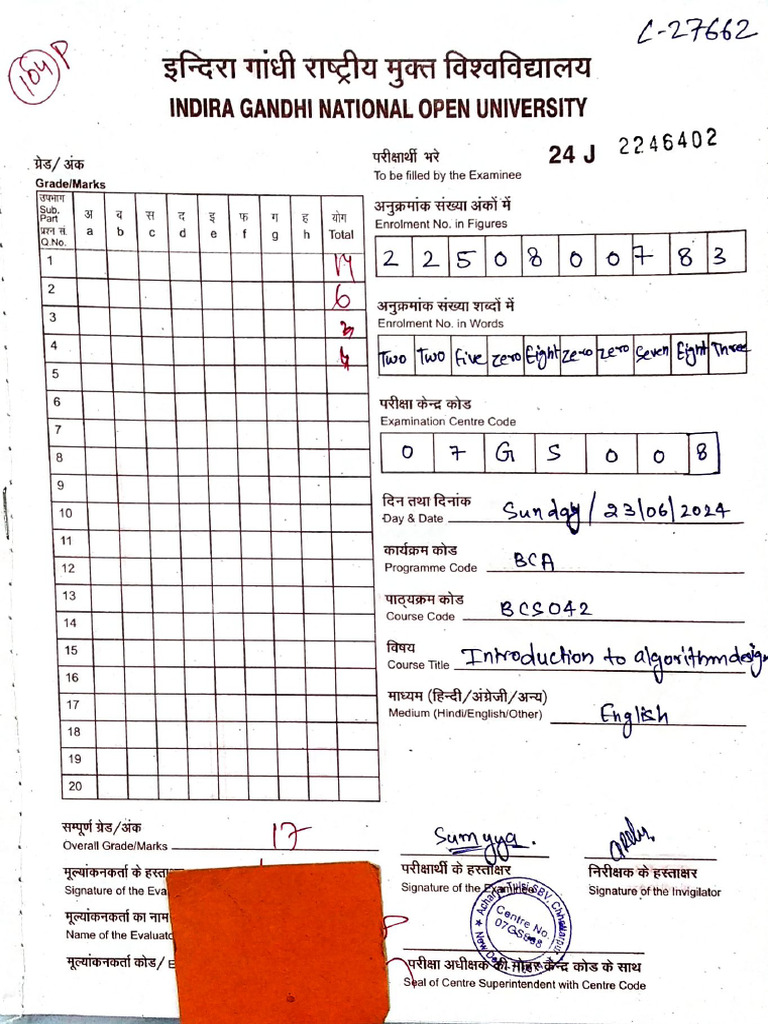 C-27662
104 P
इन्दिरा गांधी राष्ट्रीय मुक्त विश्वविद्यालय
INDIRA GANDHI NATIONAL OPEN UNIVERSITY
24 J 2246402
ग्रेड/ अंक
Grade/Marks
उपभाग
Sub.
Part
प्रश्न सं.
Q.No.
अ a
ब b
स c
द d
इ e
फ f
ग g
ह h
योग Total
1
2 6
3
4
5
6
7
8
9
10
11
12
13
14
15
16
17
18
19
20
सम्पूर्ण ग्रेड/अंक
Overall Grade/Marks 17
मूल्यांकनकर्ता के हस्ता
Signature of the Eva
मूल्यांकनकर्ता का नाम
Name of the Evaluato
मूल्यांकनकर्ता कोड/ E
परीक्षार्थी भरे
To be filled by the Examinee
अनुक्रमांक संख्या अंकों में
Enrolment No. in Figures
2 2 5 0 8 0 0 7 8 3
अनुक्रमांक संख्या शब्दों में
Enrolment No. in Words
Two Two five zero Eight zero zero Seven Eight Three
परीक्षा केन्द्र कोड
Examination Centre Code
0 7 G S 0 0 8
दिन तथा दिनांक
Day & Date Sunday / 23/06/2024
कार्यक्रम कोड
Programme Code BCA
पाठ्यक्रम कोड
Course Code BCS042
विषय
Course Title Introduction to algorithm design
माध्यम (हिन्दी/अंग्रेजी/अन्य)
Medium (Hindi/English/Other) English
Sumyya.
परीक्षार्थी के हस्ताक्षर
Signature of the Examinee
निरीक्षक के हस्ताक्षर
Signature of the Invigilator
Centre No.
परीक्षा अधीक्षक की मोहर केन्द्र कोड के साथ
Seal of Centre Superintendent with Centre Code